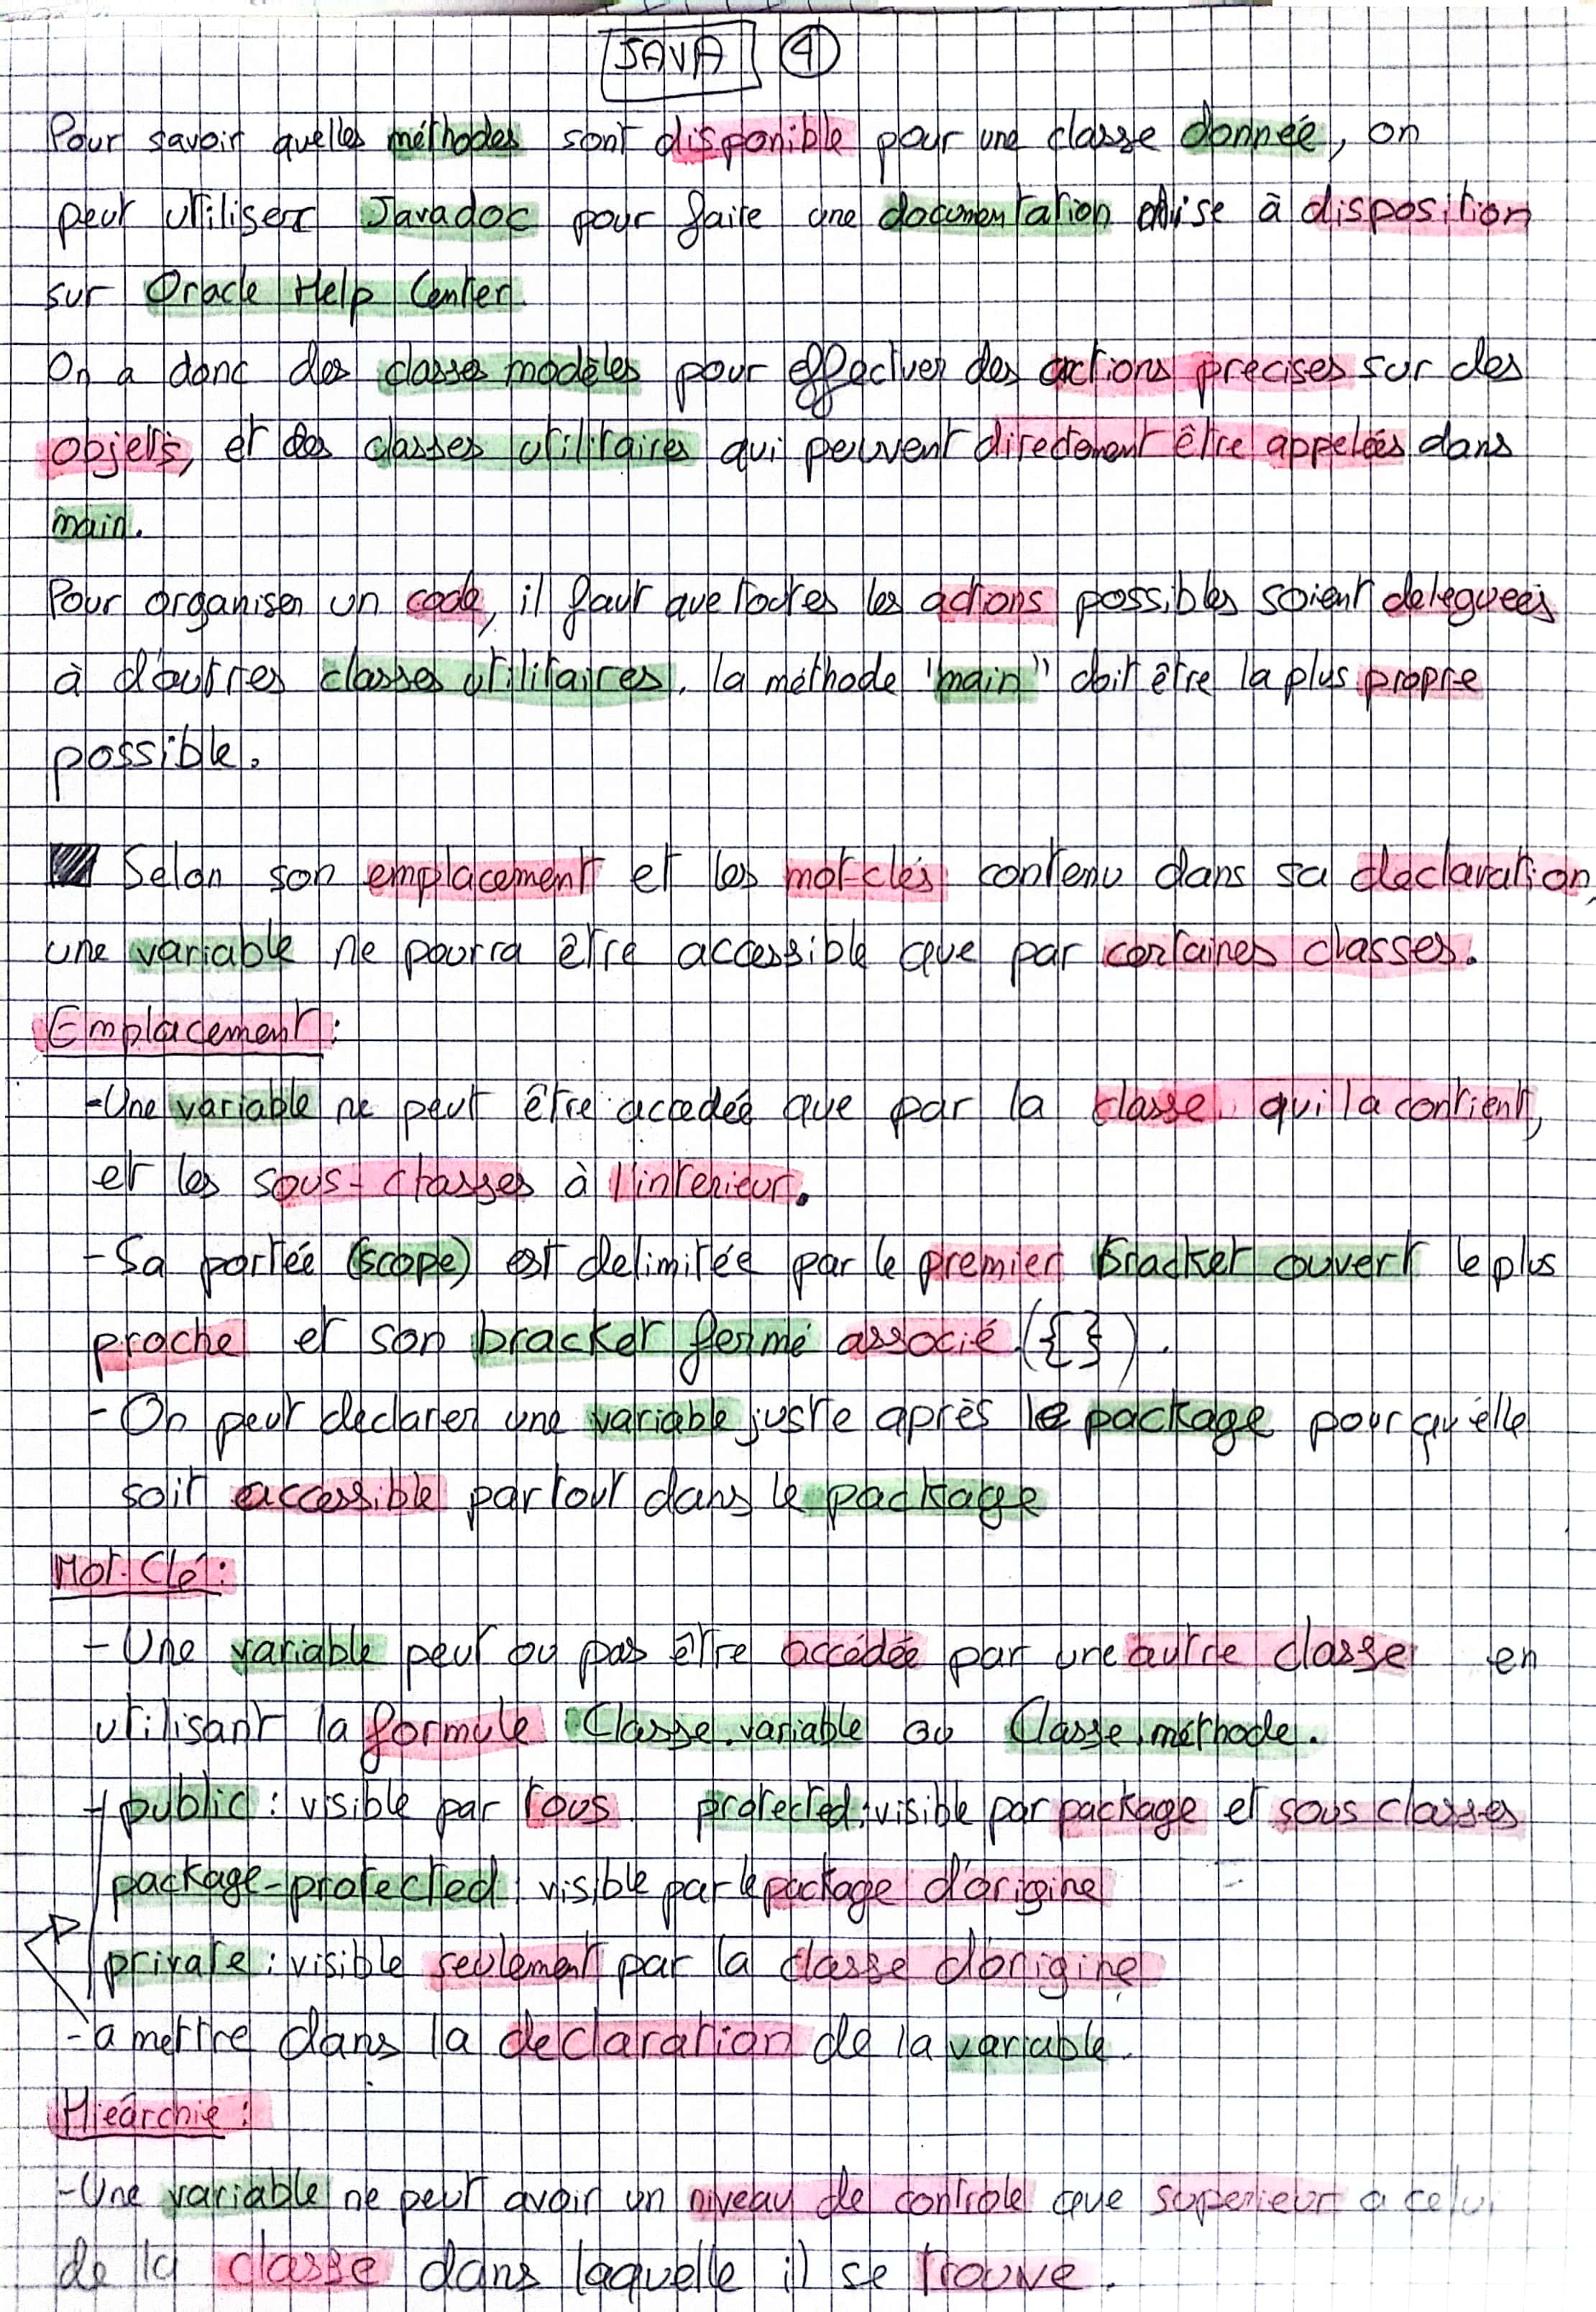 JAVA 4
Pour savoir quelles méthodes sont disponible pour une classe donnée, on
peut utiliser Javadoc pour faire une documentation mise à disposition
sur Oracle Help Center.
On a donc des classe modèles pour effectuer des actions precises sur des
objets, et des classes utilitaires qui peuvent directement être appelées dans
main.
Pour organiser un code, il faut que toutes les actions possibles soient deleguées
à d'autres classes utilitaires. la méthode "main" doit être la plus propre
possible.
Selon son emplacement et les mot-clés contenu dans sa declaration,
une variable ne pourra être accessible que par certaines classes.
Emplacement :
-Une variable ne peut être accedée que par la classe qui la contient,
et les sous-classes à l'interieur.
- Sa portée (scope) est delimitée par le premier bracket ouvert le plus
proche et son bracket fermé associé ({}).
- On peut declarer une variable juste après le package pour qu'elle
soit accessible partout dans le package
Mot-Clé :
- Une variable peut ou pas être accédée par une autre classe en
utilisant la formule Classe.variable ou Classe.méthode.
- public : visible par tous protected : visible par package et sous classes
package-protected : visible par le package d'origine
private : visible seulement par la classe d'origine
- a mettre dans la declaration de la variable.
Hiéarchie :
-Une variable ne peut avoir un niveau de controle que superieur a celui
de la classe dans laquelle il se trouve.